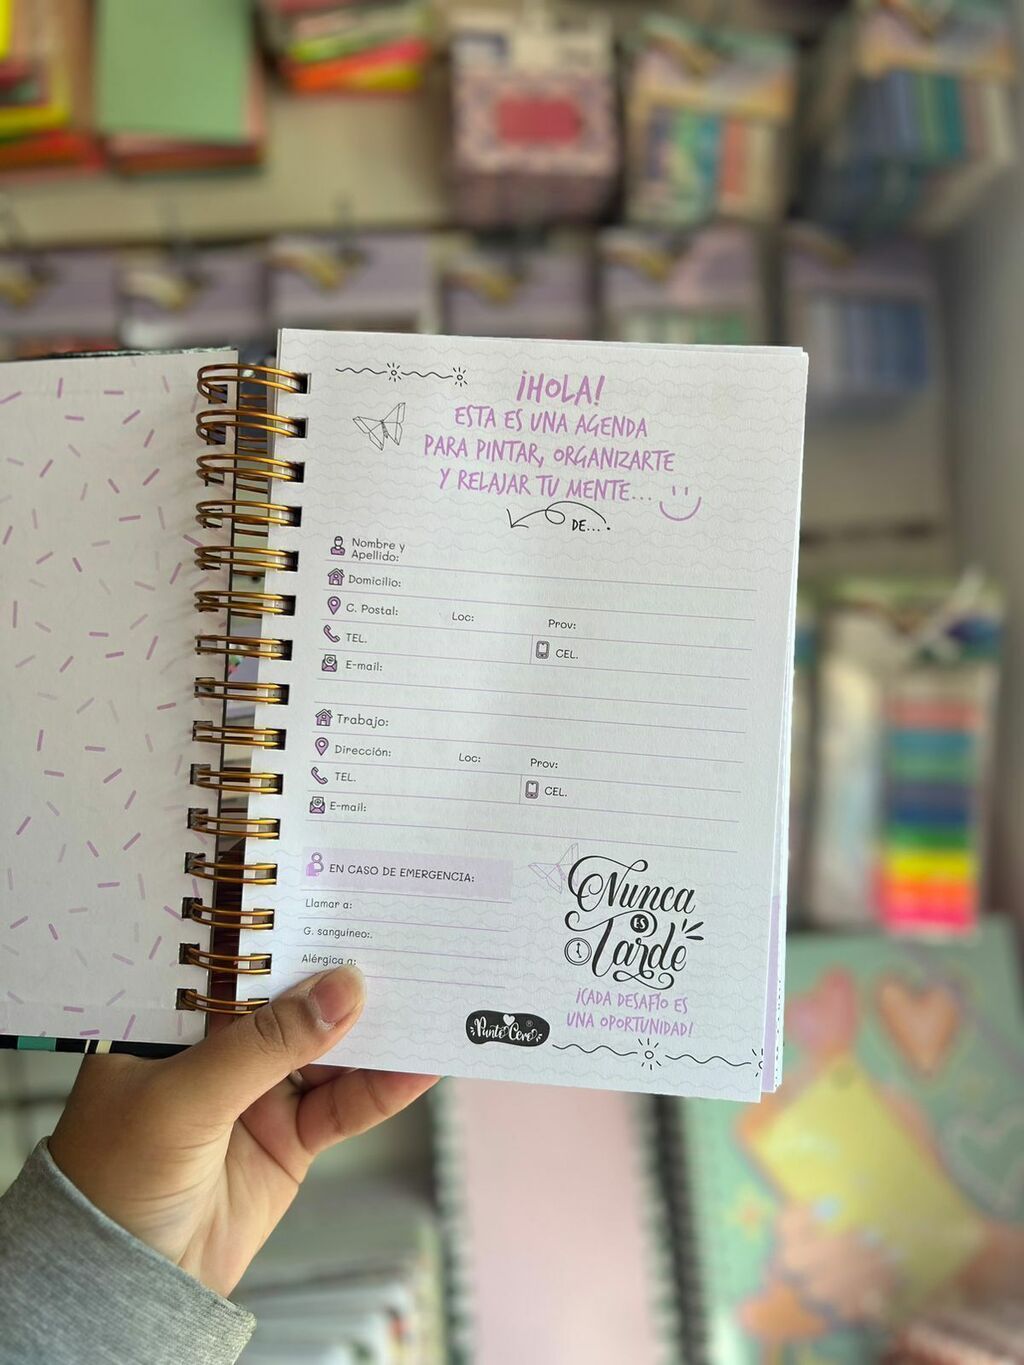 ¡HOLA!
ESTA ES UNA AGENDA
PARA PINTAR, ORGANIZARTE
Y RELAJAR TU MENTE...
DE....
Nombre y
Apellido:
Domicilio:
C. Postal: Loc: Prov:
TEL. CEL.
E-mail:
Trabajo:
Dirección: Loc: Prov:
TEL. CEL.
E-mail:
EN CASO DE EMERGENCIA:
Llamar a:
G. sanguíneo:.
Alérgica a:
Nunca
ES
Tarde
¡CADA DESAFÍO ES
UNA OPORTUNIDAD!
Punto Cero®